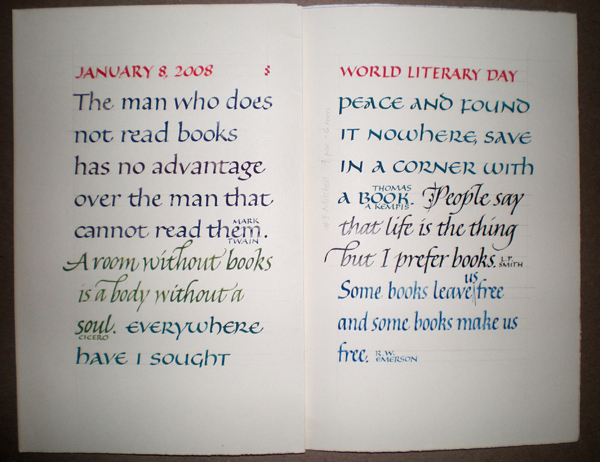 JANUARY 8, 2008
The man who does
not read books
has no advantage
over the man that
cannot read them.
MARK
TWAIN
A room without books
is a body without a
soul. EVERYWHERE
CICERO
HAVE I SOUGHT
WORLD LITERARY DAY
PEACE AND FOUND
IT NOWHERE, SAVE
IN A CORNER WITH
A BOOK. THOMAS
A KEMPIS
People say
that life is the thing
but I prefer books. L.P.
SMITH
Some books leave us free
and some books make us
free. R.W.
EMERSON